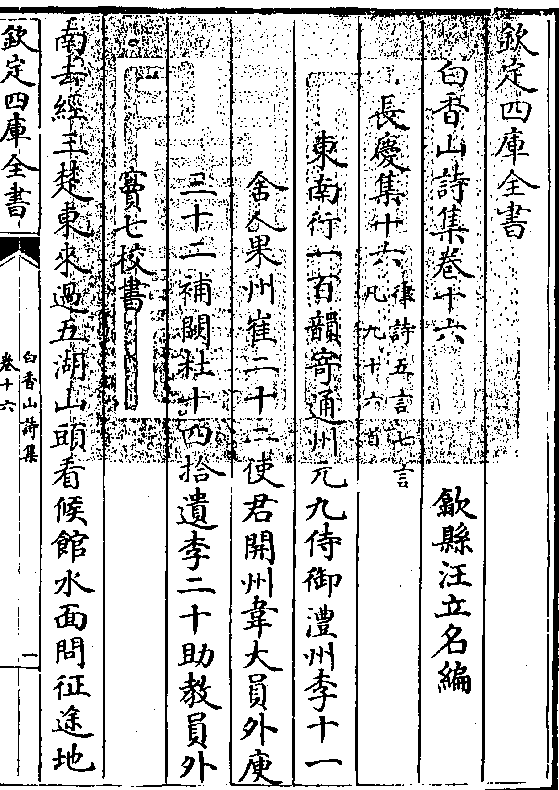 欽定四庫全書
白香山詩集卷十六
歙縣汪立名編
長慶集十六
律詩五言七言
凡九十六首
東南行一百韻寄通州元九侍御澧州李十一
舍人果州崔二十二使君開州韋大員外庾
三十二補闕杜十四拾遺李二十助教員外
竇七校書
南去經三楚東來過五湖山頭看候館水面問征途地
欽定四庫全書
白香山詩集
卷十六
一